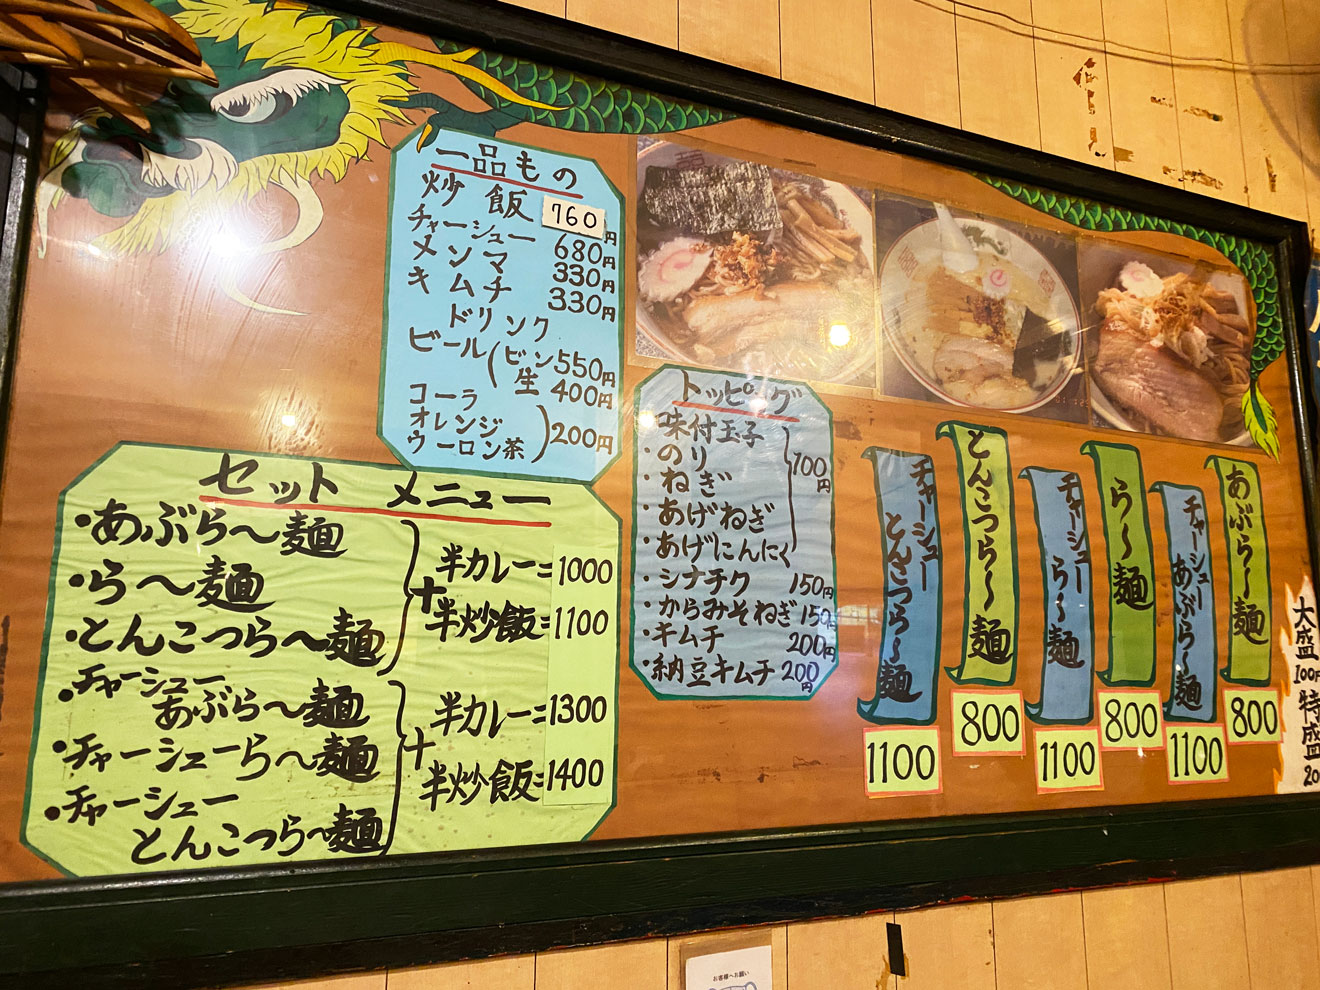 一品もの
炒飯 760円
チャーシュー 680円
メンマ 330円
キムチ 330円
ドリンク
ビール(ビン550円
生 400円
コーラ
オレンジ
ウーロン茶
)200円
セット メニュー
・あぶら〜麺
・ら〜麺
・とんこつら〜麺
+
半カレー=1000
半炒飯=1100
・チャーシュー
あぶら〜麺
・チャーシューら〜麺
・チャーシュー
とんこつら〜麺
+
半カレー=1300
半炒飯=1400
トッピング
・味付玉子
・のり
・ねぎ
・あげねぎ
・あげにんにく
100円
・シナチク 150円
・からみそねぎ 150円
・キムチ 200円
・納豆キムチ 200円
あぶら〜麺
800
チャーシュー
あぶら〜麺
1100
ら〜麺
800
チャーシュー
ら〜麺
1100
とんこつら〜麺
800
チャーシュー
とんこつら〜麺
1100
大盛
100円
特盛
20
お客様へお願い